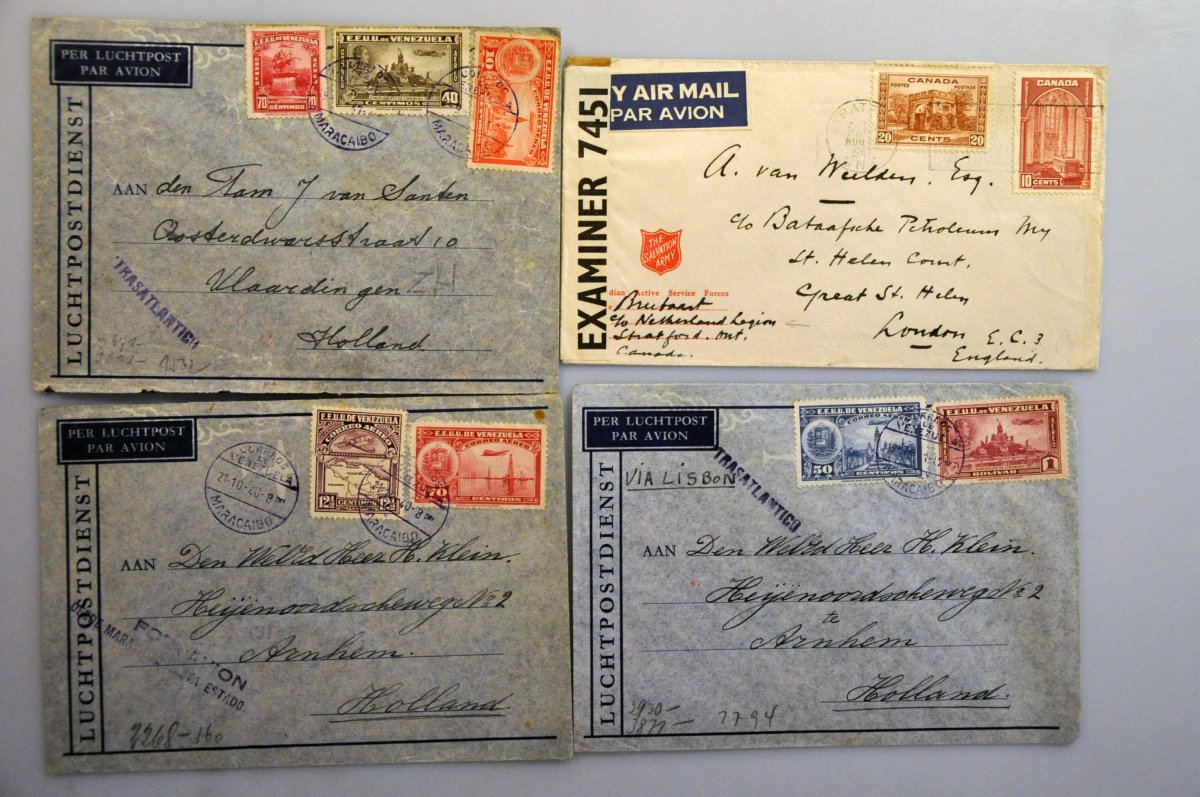 PER LUCHTPOST
PAR AVION
LUCHTPOSTDIENST
E.E.U.U. DE VENEZUELA
70 CENTIMOS 70
E.E.U.U. DE VENEZUELA
CENTIMOS 40
E.E.U.U. DE VENEZUELA
10 CENTIMOS
MARACAIBO
AAN den Tam J van Santen
Oosterdwarsstraat 10
Vlaardingen ZH
Holland
TRASATLANTICO
EXAMINER 7451
Y AIR MAIL
PAR AVION
CANADA
POSTES POSTAGE
20 CENTS 20
CANADA
10 CENTS
A. van Weelden. Esq.
c/o Bataafsche Petroleum My
St. Helen Court.
Great St. Helen
London E.C.3
England.
THE
SALVATION
ARMY
dian Active Service Forces
c/o Netherland Legion
Stratford. Ont.
Canada.
PER LUCHTPOST
PAR AVION
LUCHTPOSTDIENST
E.E.U.U. DE VENEZUELA
CORREO AEREO
12½ CENTIMOS 12½
E.E.U.U. DE VENEZUELA
CORREO AEREO
70 CENTIMOS
CORREOS
DE
VENEZUELA
21-10-40-8 PM
MARACAIBO
AAN Den WelEd Heer H. Klein.
Heijenoordscheweg No 2
Arnhem.
Holland
ESTADO
2268-160
PER LUCHTPOST
PAR AVION
LUCHTPOSTDIENST
VIA LISBON
TRASATLANTICO
E.E.U.U. DE VENEZUELA
CORREO AEREO
50 CENTIMOS
E.E.U.U. DE VENEZUELA
BOLIVAR 1
MARACAIBO
AAN Den WelEd Heer H. Klein.
Heijenoordscheweg No 2
te
Arnhem
Holland.
7794